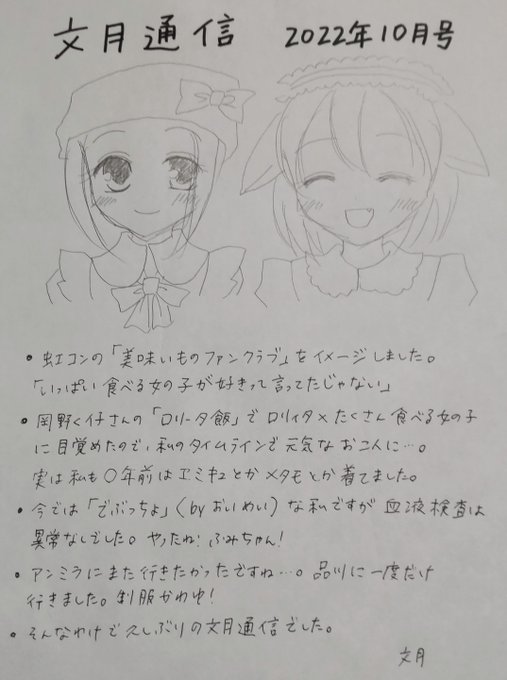 文月通信 2022年10月号
• 虹コンの「美味いものファンクラブ」をイメージしました。
「いっぱい食べる女の子が好きって言ってたじゃない」
• 岡野く仔さんの「ロリータ飯」でロリィタ×たくさん食べる女の子
に目覚めたので、私のタイムラインで元気なお二人に…。
実は私も〇年前はエミキュとかメタモとか着てました。
• 今では「でぶっちょ」(byおいめい)な私ですが血液検査は
異常なしでした。やったね!ふみちゃん!
• アンミラにまた行きたかったですね…。品川に一度だけ
行きました。制服かわゆ!
• そんなわけで久しぶりの文月通信でした。
文月